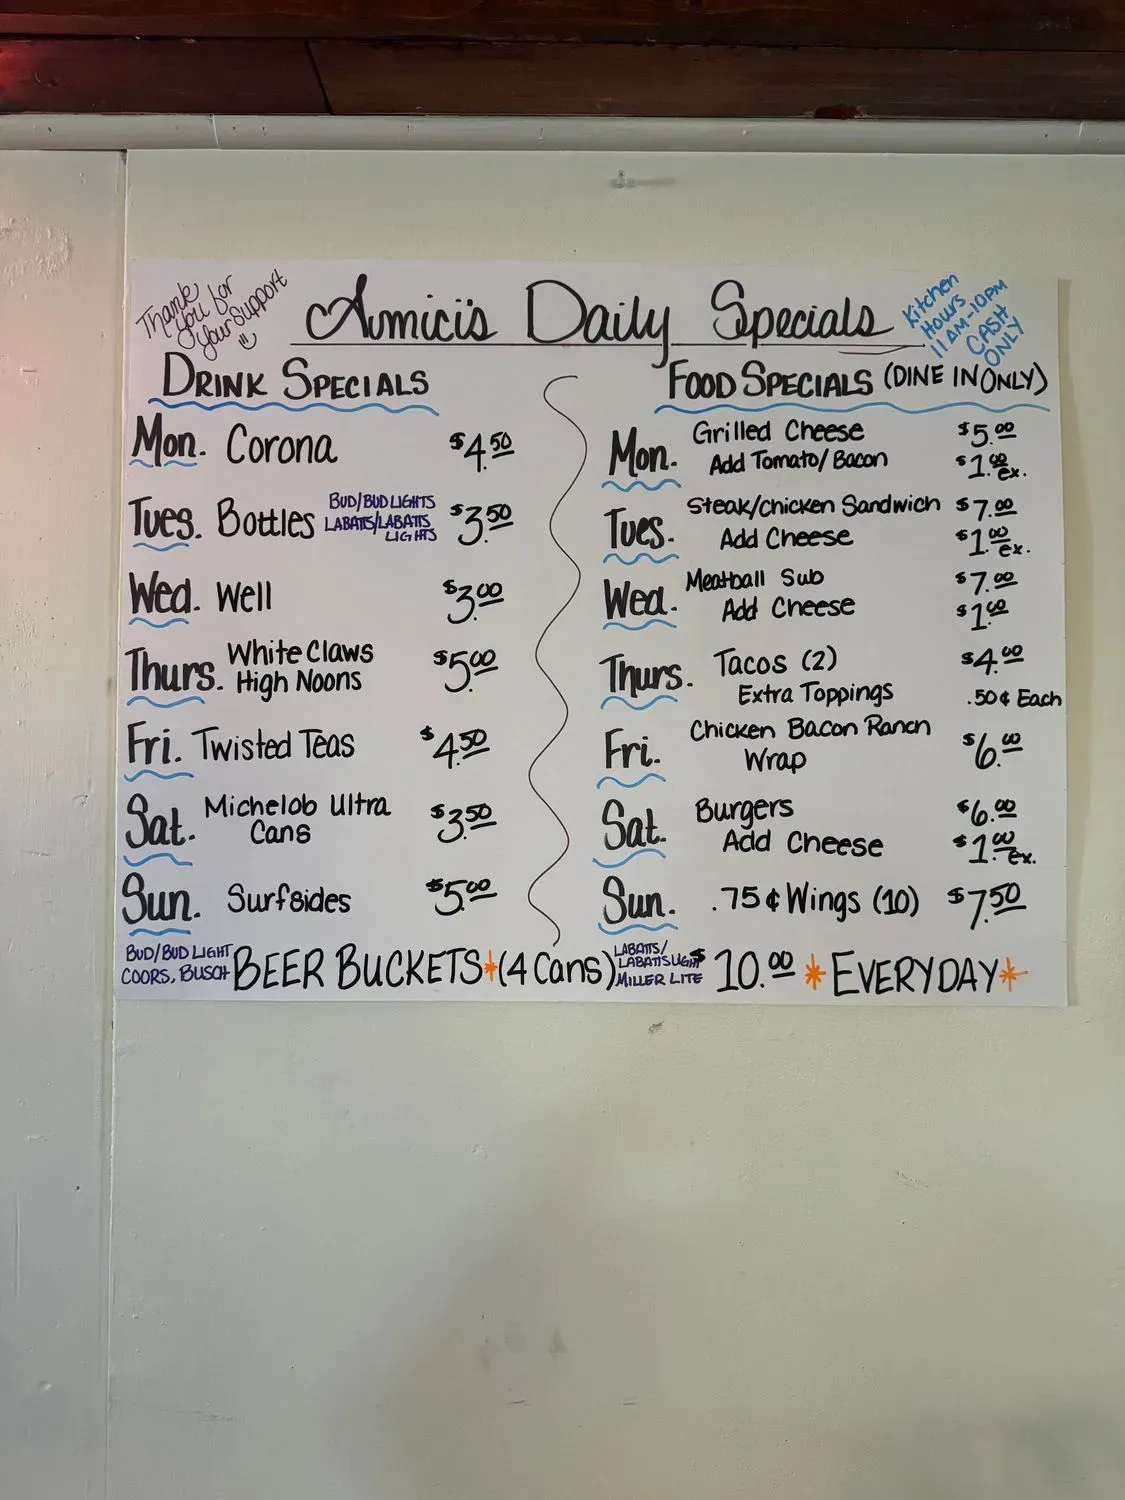 Thank
you for
your Support
Amici's Daily Specials
Kitchen
Hours
11AM-10PM
CASH
ONLY
DRINK SPECIALS
Mon. Corona $4.50
Tues. Bottles BUD/BUD LIGHTS $3.50
LABATTS/LABATTS
LIGHTS
Wed. Well $3.00
Thurs. White Claws $5.00
High Noons
Fri. Twisted Teas $4.50
Sat. Michelob Ultra $3.50
Cans
Sun. Surfsides $5.00
FOOD SPECIALS (DINE IN ONLY)
Mon. Grilled Cheese $5.00
Add Tomato/Bacon $1.00 ex.
Tues. Steak/Chicken Sandwich $7.00
Add Cheese $1.00 ex.
Wed. Meatball Sub $7.00
Add Cheese $1.00
Thurs. Tacos (2) $4.00
Extra Toppings .50¢ Each
Fri. Chicken Bacon Ranch $6.00
Wrap
Sat. Burgers $6.00
Add Cheese $1.00 ex.
Sun. .75¢ Wings (10) $7.50
BUD/BUD LIGHT
COORS, BUSCH
BEER BUCKETS*(4 Cans)
LABATTS/
LABATTS LIGHT
MILLER LITE
$10.00 *EVERYDAY*